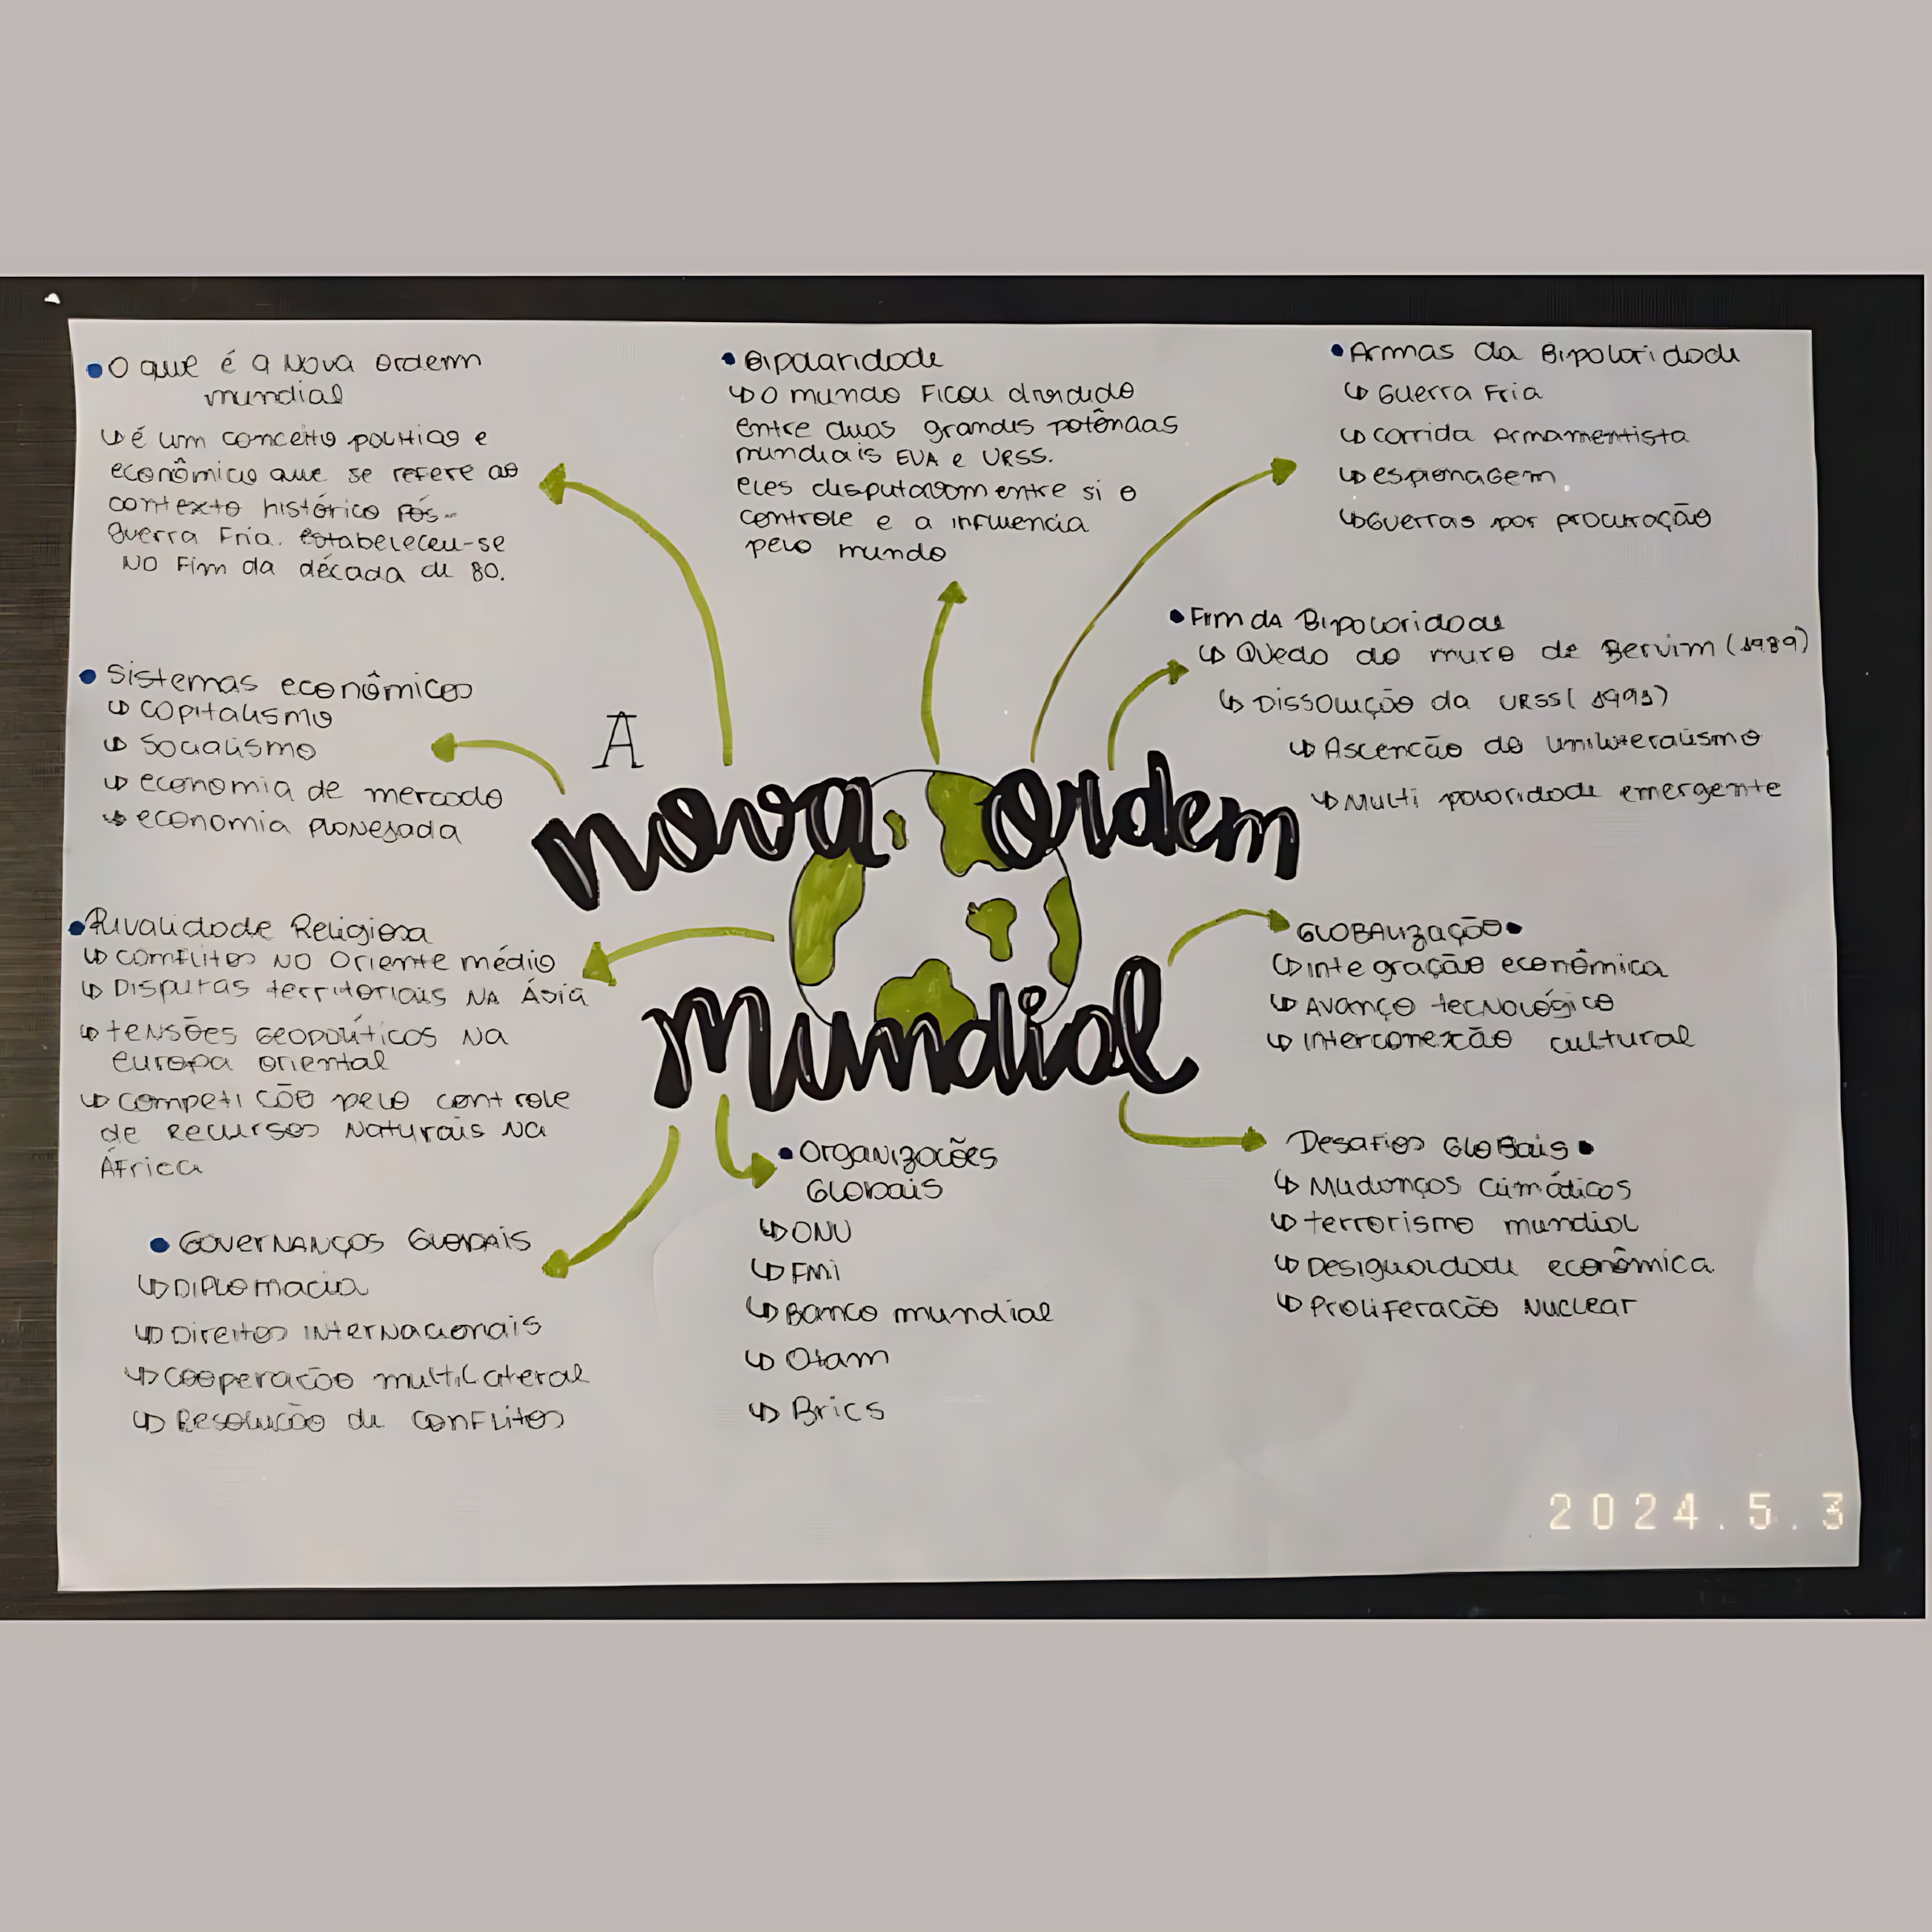 • O que é a Nova Ordem
mundial
↳ é um conceito político e
econômico que se refere ao
contexto histórico Pós-
Guerra Fria. estabeleceu-se
No Fim da década de 80.
• Bipolaridade
↳ O mundo Ficou dividido
entre duas grandes potências
mundiais EUA e URSS.
eles disputavam entre si o
controle e a influencia
pelo mundo
• Armas da Bipolaridade
↳ Guerra Fria
↳ corrida Armamentista
↳ espionagem
↳ Guerras por procuração
• Fim da Bipolaridade
↳ Queda do muro de Berlim (1989)
↳ Dissolução da URSS (1991)
↳ Ascenção do Unilateralismo
↳ Multi polaridade emergente
• Sistemas econômicos
↳ capitalismo
↳ Socialismo
↳ economia de mercado
↳ economia planejada
A
nova ordem
mundial
• Rivalidade Religiosa
↳ conflitos No Oriente médio
↳ Disputas territoriais NA Ásia
↳ tensões Geopolíticos Na
europa oriental
↳ competição pelo controle
de Recursos Naturais Na
África
GLOBALIZAÇÃO •
↳ integração econômica
↳ Avanço tecnológico
↳ Interconexão cultural
• Governanços Globais
↳ Diplomacia
↳ Direitos internacionais
↳ cooperação multilateral
↳ Resolução de conflitos
• Organizações
Globais
↳ ONU
↳ FMi
↳ Banco mundial
↳ Otam
↳ Brics
Desafios Globais •
↳ Mudanços climáticos
↳ terrorismo mundial
↳ Desigualdade econômica
↳ Proliferação Nuclear
2024.5.3